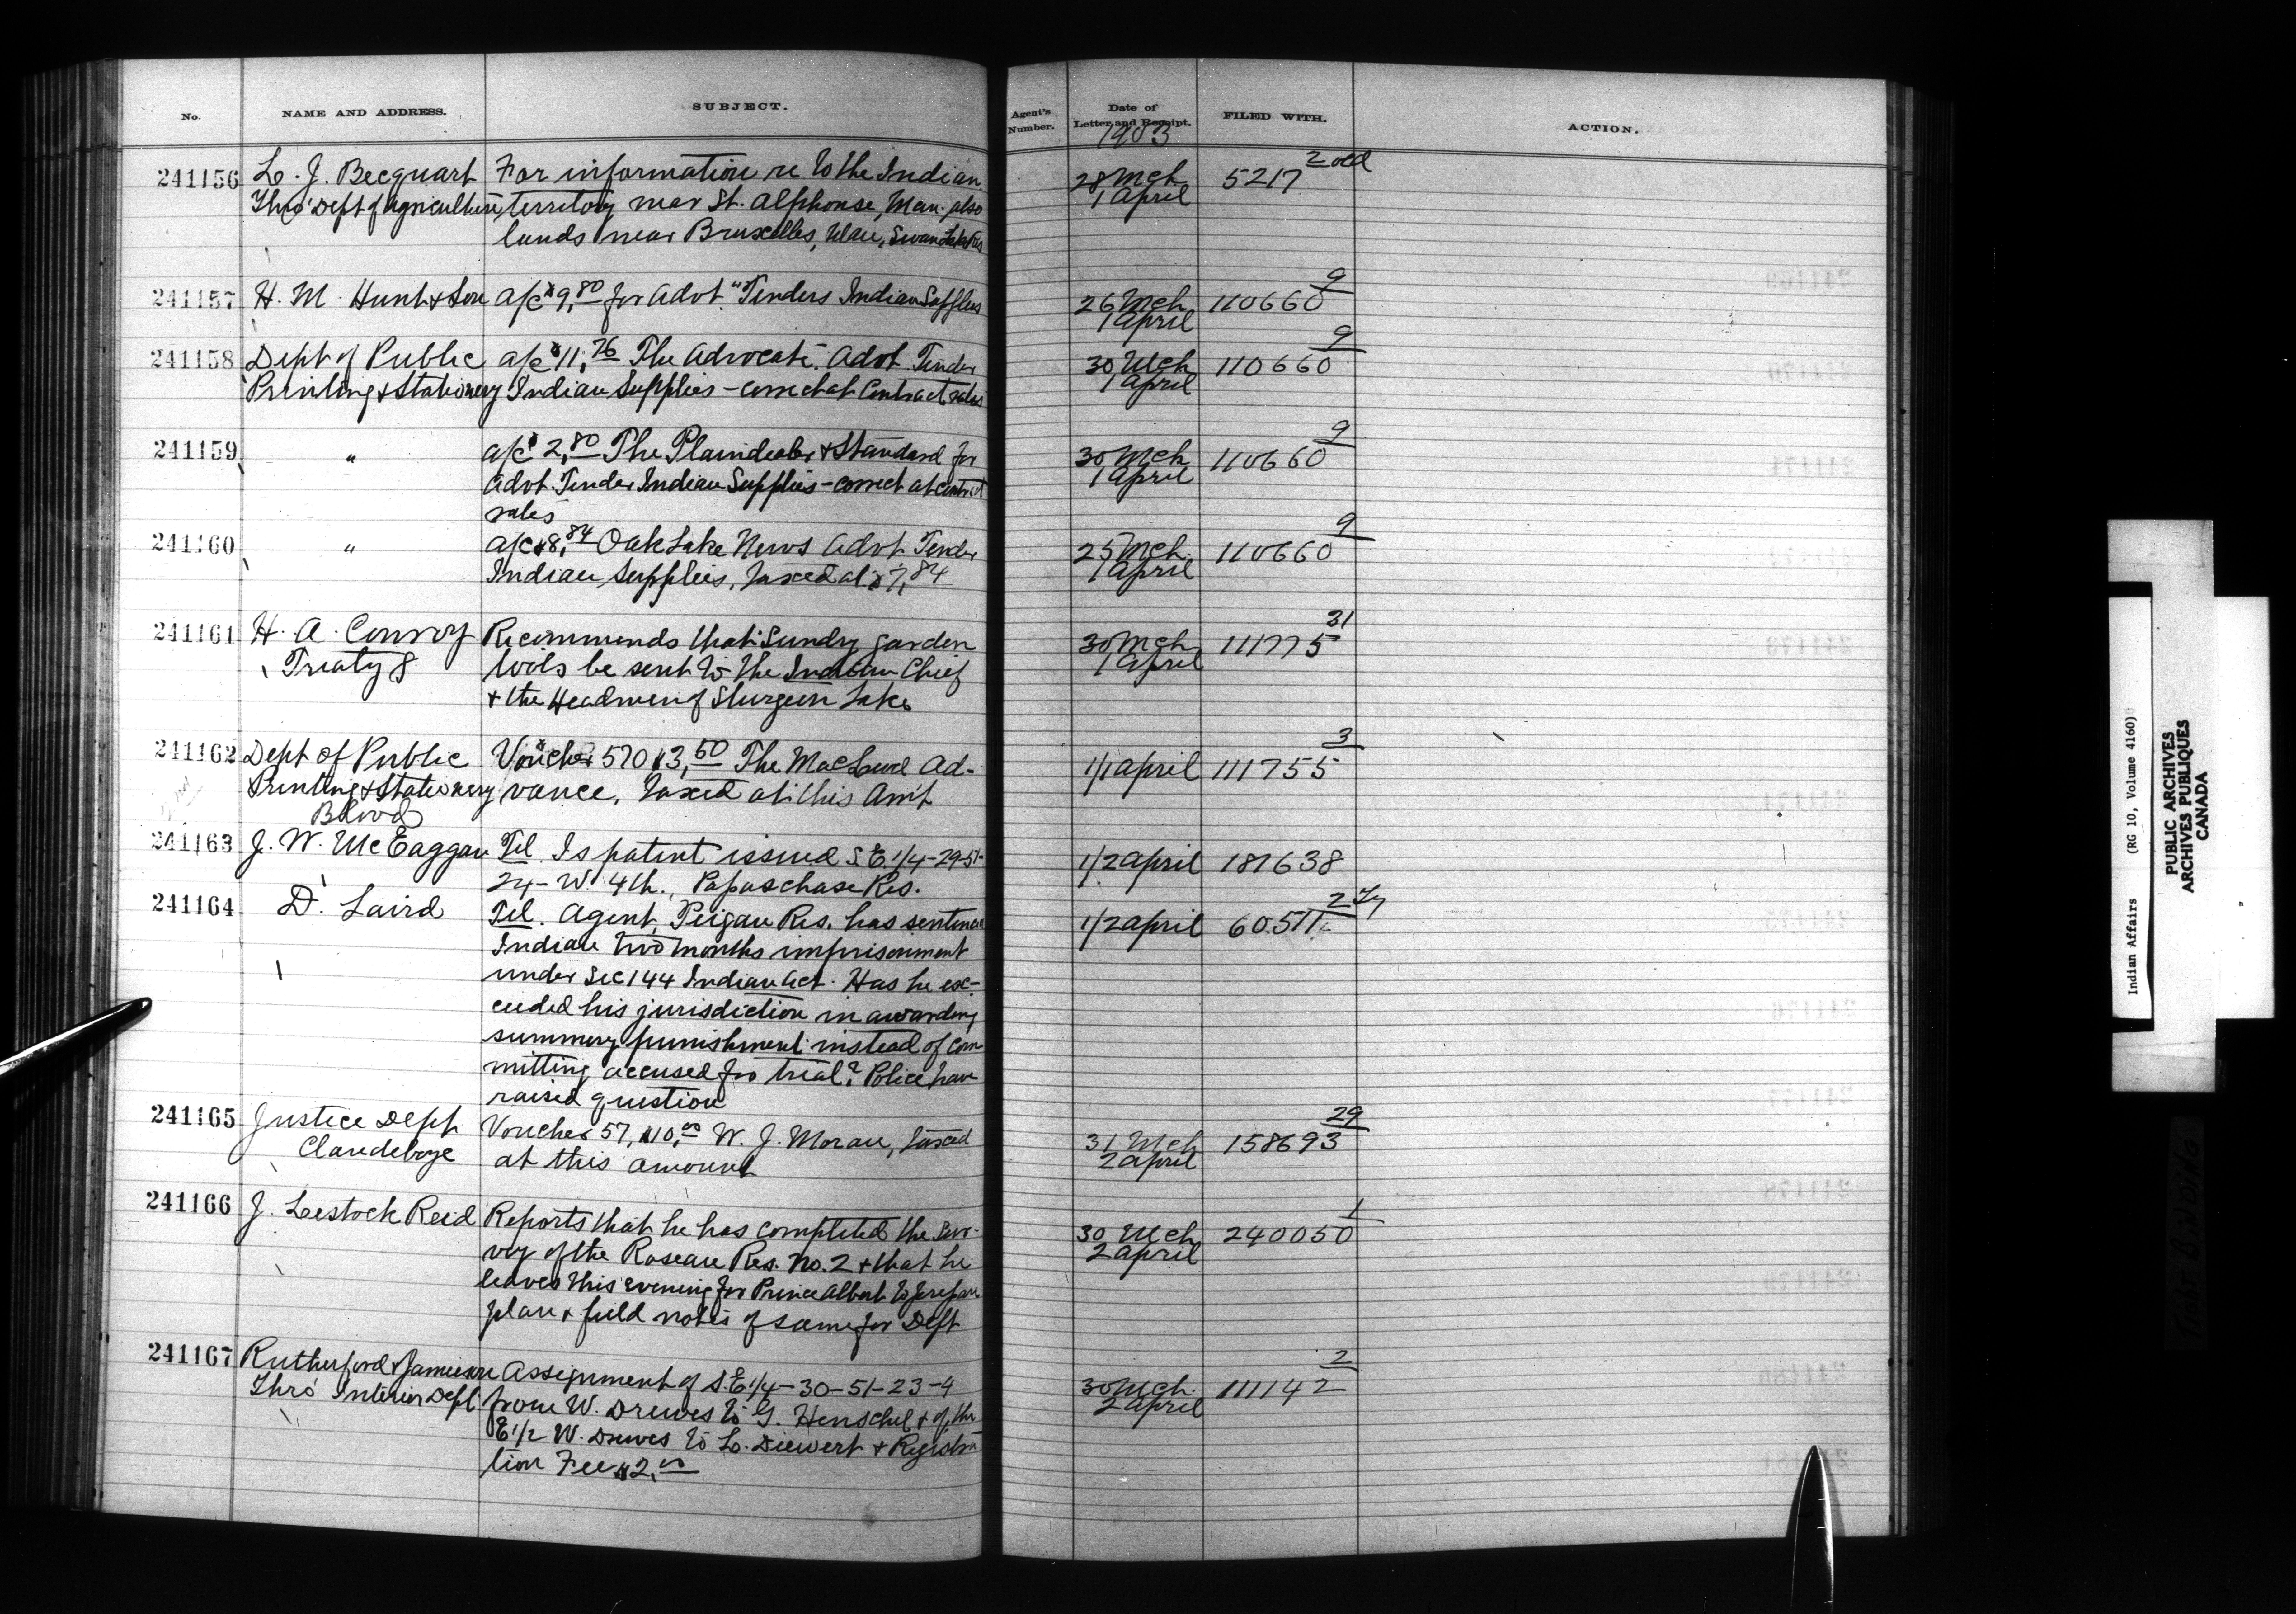 No. NAME AND ADDRESS. SUBJECT. Agent's Number. Date of Letter and Receipt. FILED WITH. ACTION.
1903
241156 L. J. Becquart For information re to the Indian 28 Mch 5217 2 old
Thro' Dept of Agriculture, territory near St. Alphonse, Man. also 1 April
lands near Bruxelles, Man. Swan Lake Res
241157 H. M. Hunt & Son a/c $9,80 for Advt. "Tenders Indian Supplies 26 Mch 110660 9
1 April
241158 Dept of Public a/c $11,76 The Advocate. Advt. Tender 30 Mch 110660 9
Printing & Stationery Indian Supplies - correct at Contract rates 1 April
241159 " a/c $2,80 The Plaindealer & Standard for 30 Mch 110660 9
Advt. Tender Indian Supplies - correct at contract 1 April
rates
241160 " a/c $8,84 Oak Lake News Advt Tender 25 Mch 110660 9
Indian Supplies, taxed at $7,84 1 April
241161 H. A. Conroy Recommends that Sundry garden 30 Mch 111775 31
Treaty 8 tools be sent to the Indian Chief 1 April
& the Headmen of Sturgeon Lake
241162 Dept of Public Voucher 570 $3,50 The MacLeod Ad- 1/1 April 111755 3
Printing & Stationery vance. Taxed at this Am't
Blood
241163 J. W. McEaggan Tel. Is patent issued S.E. 1/4-29-51- 1/2 April 187638
24-W. 4th., Papaschase Res.
241164 D. Laird Tel. Agent, Peigan Res. has sentenced 1/2 April 60.511 2
Indian two months imprisonment
under Sec 144 Indian Act. Has he ex-
ceeded his jurisdiction in awarding
summary punishment instead of com
mitting accused for trial? Police have
raised question
241165 Justice Dept Voucher 57, $10,00 W. J. Moran, taxed 31 Mch 158693 29
Clandeboye at this amount 2 April
241166 J. Lestock Reid Reports that he has completed the Sur- 30 Mch 240050 1
vey of the Roseau Res. No. 2 & that he 2 April
leaves this evening for Prince Albert to prepare
plan & field notes of same for Dept
241167 Rutherford & Jamieson Assignment of S.E 1/4-30-51-23-4 30 Mch. 111142 2
Thro' Interior Dept from W. Drewes to G. Henschel & of the 2 April
E 1/2 W. Drewes to L. Diewert & Registra
tion Fee $2,00
Indian Affairs (RG 10, Volume 4160)
PUBLIC ARCHIVES
ARCHIVES PUBLIQUES
CANADA
TIGHT BINDING